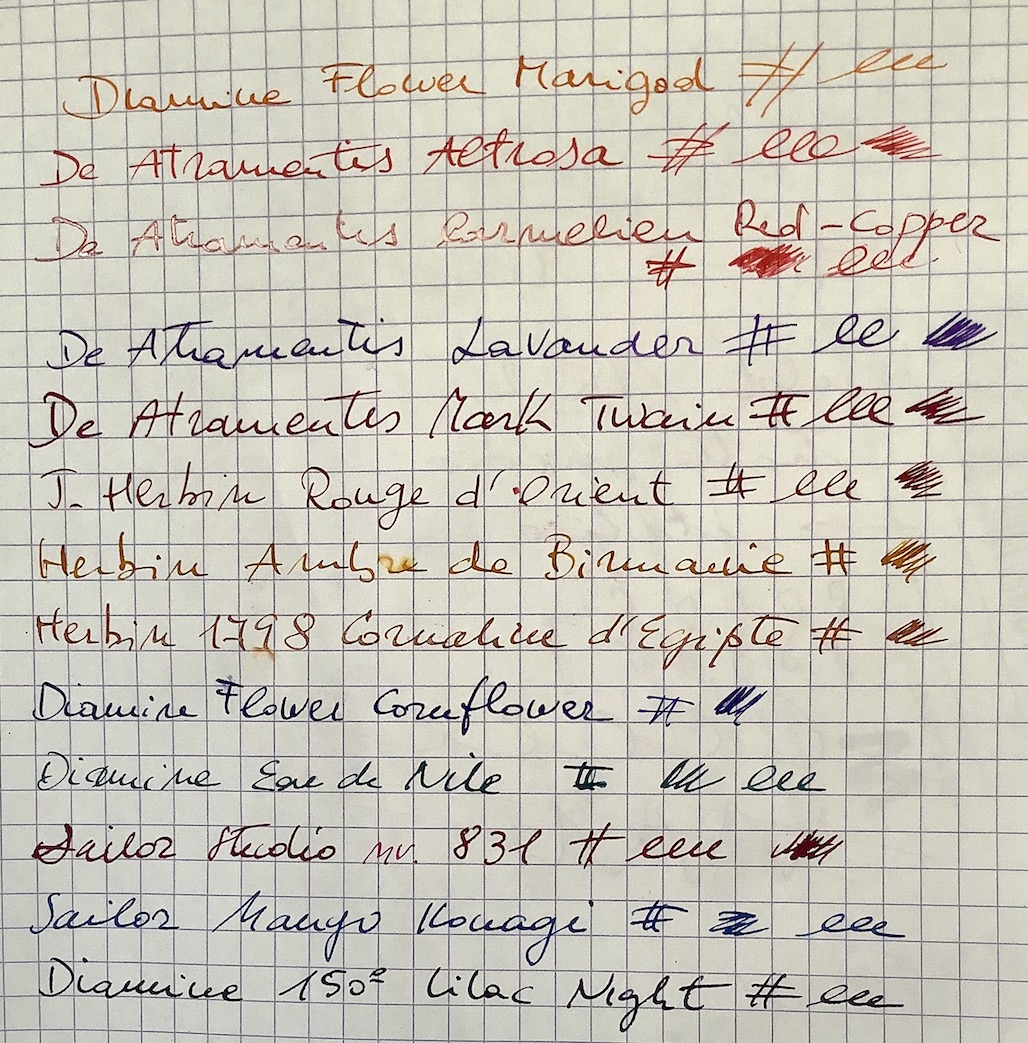 Diamine Flower Marigod #
De Atramentis Altrosa #
De Atramentis Carnelien Red-Copper
#
De Atramentis Lavander #
De Atramentis Mark Twain #
J. Herbin Rouge d'Orient #
Herbin Ambre de Birmanie #
Herbin 1798 Cornaline d'Egipte #
Diamine Flower Cornflower #
Diamine Eau de Nile #
Sailor Studio nr. 831 #
Sailor Manyo Konagi #
Diamine 150º Lilac Night #